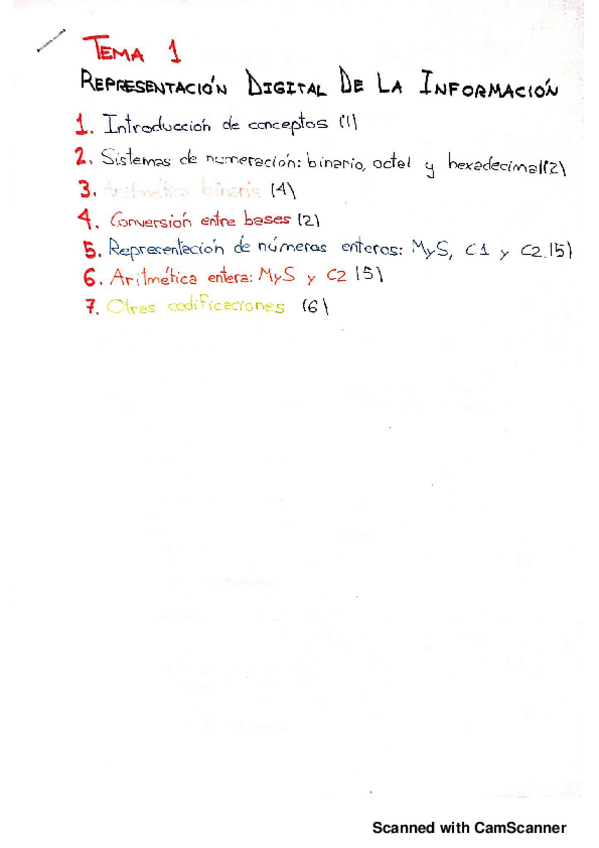 TEMA 1
REPRESENTACIÓN DIGITAL DE LA INFORMACIÓN
1. Introducción de conceptos (1)
2. Sistemas de numeración: binario, octal y hexadecimal (2)
3. Aritmética binaria (4)
4. Conversión entre bases (2)
5. Representación de números enteros: MyS, C1 y C2 (5)
6. Aritmética entera: MyS y C2 (5)
7. Otras codificaciones (6)
Scanned with CamScanner